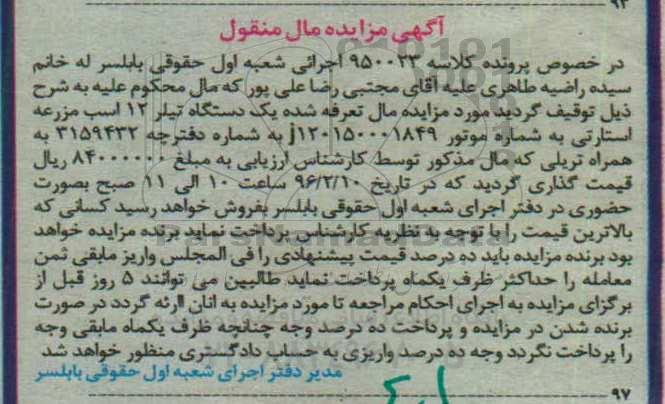 ۹۳
آگهی مزایده مال منقول
در خصوص پرونده کلاسه ۹۵۰۰۲۳ اجرائی شعبه اول حقوقی بابلسر له خانم
سیده راضیه طاهری علیه آقای مجتبی رضا علی پور که مال محکوم علیه به شرح
ذیل توقیف گردید مورد مزایده مال تعرفه شده یک دستگاه تیلر ۱۲ اسب مزرعه
استارتی به شماره موتور j۱۲۰۱۵۰۰۰۱۸۴۹ به شماره دفترچه ۳۱۵۹۴۳۲ به
همراه تریلی که مال مذکور توسط کارشناس ارزیابی به مبلغ ۸۴۰۰۰۰۰۰ ریال
قیمت گذاری گردید که در تاریخ ۹۶/۲/۱۰ ساعت ۱۰ الی ۱۱ صبح بصورت
حضوری در دفتر اجرای شعبه اول حقوقی بابلسر بفروش خواهد رسید کسانی که
بالاترین قیمت را با توجه به نظریه کارشناس پرداخت نماید برنده مزایده خواهد
بود برنده مزایده باید ده درصد قیمت پیشنهادی را فی المجلس واریز مابقی ثمن
معامله را حداکثر ظرف یکماه پرداخت نماید طالبین می توانند ۵ روز قبل از
برگزای مزایده به اجرای احکام مراجعه تا مورد مزایده به انان ارئه گردد در صورت
برنده شدن در مزایده و پرداخت ده درصد وجه چنانچه ظرف یکماه مابقی وجه
را پرداخت نگردد وجه ده درصد واریزی به حساب دادگستری منظور خواهد شد
مدیر دفتر اجرای شعبه اول حقوقی بابلسر
۹۷